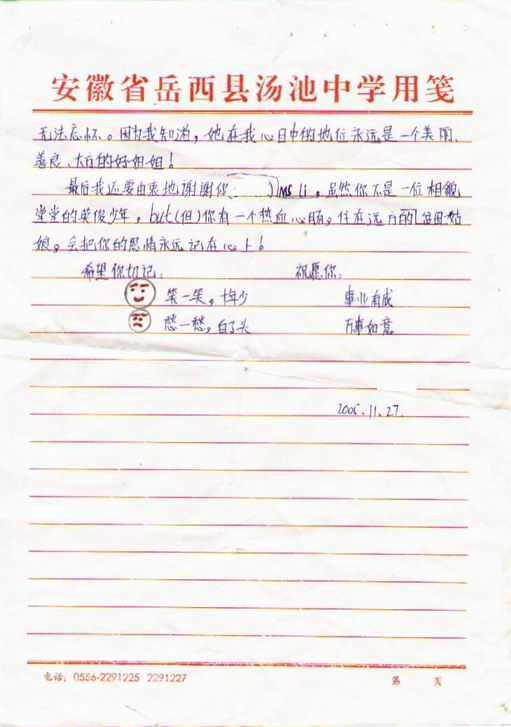 安徽省岳西县汤池中学用笺
无法忘怀。因为我知道，她在我心目中的地位永远是一个美丽、
善良、大方的好姐姐！
最后我还要由衷地谢谢你( )Ms li，虽然你不是一位相貌
堂堂的英俊少年，but(但)你有一个热血心肠。住在远方的姑
娘。会把你的恩情永远记在心上！
希望你切记： 祝愿你：
笑一笑，十年少 事业有成
愁一愁，白了头 万事如意
2005.11.27.
电话：0556-2291225 2291227 第 页